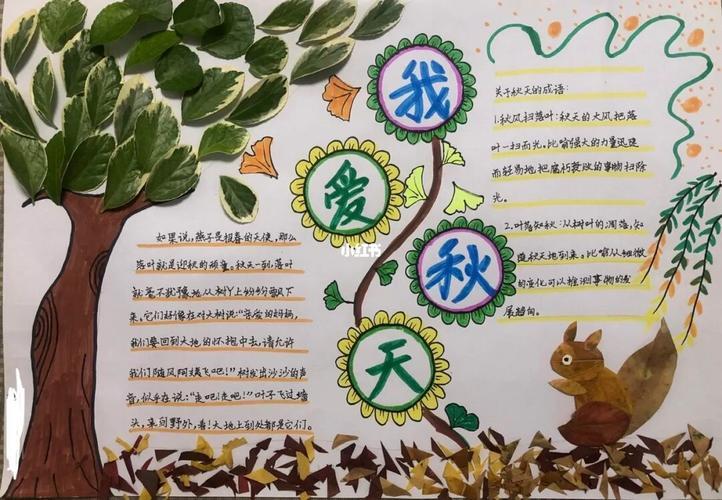 我
爱
秋
天
小红书
如果说，燕子是报春的天使，那么
落叶就是迎秋的硕童。秋天一到，落叶
就毫不犹豫地从树丫上纷纷飘下
来，它们好像在对大树说："亲爱的妈妈，
我们要回到大地的怀抱中去，请允许
我们随风阿娥飞吧！"树发出沙沙的声
音，似乎在说："走吧！走吧！"叶子飞过墙
头，来到野外，看！大地上到处都是它们。
关于秋天的成语：
1.秋风扫落叶：秋天的大风把落
叶一扫而光。比喻强大的力量迅速
而轻易地把腐朽衰败的事物扫除
光。
2.叶落知秋：从树叶的凋落，知
随秋天地到来。比喻从细微
的变化可以推测事物的发
展趋向。